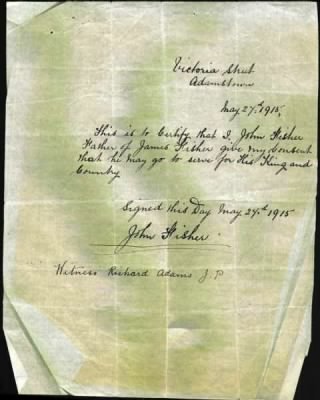 Victoria Street
Adamstown
May 27th 1915,
This is to Certify that I, John Fisher
Father of James Fisher give my Consent
that he may go to serve for His King and
Country
Signed this Day May 27th 1915
John Fisher.
Witness Richard Adams J P